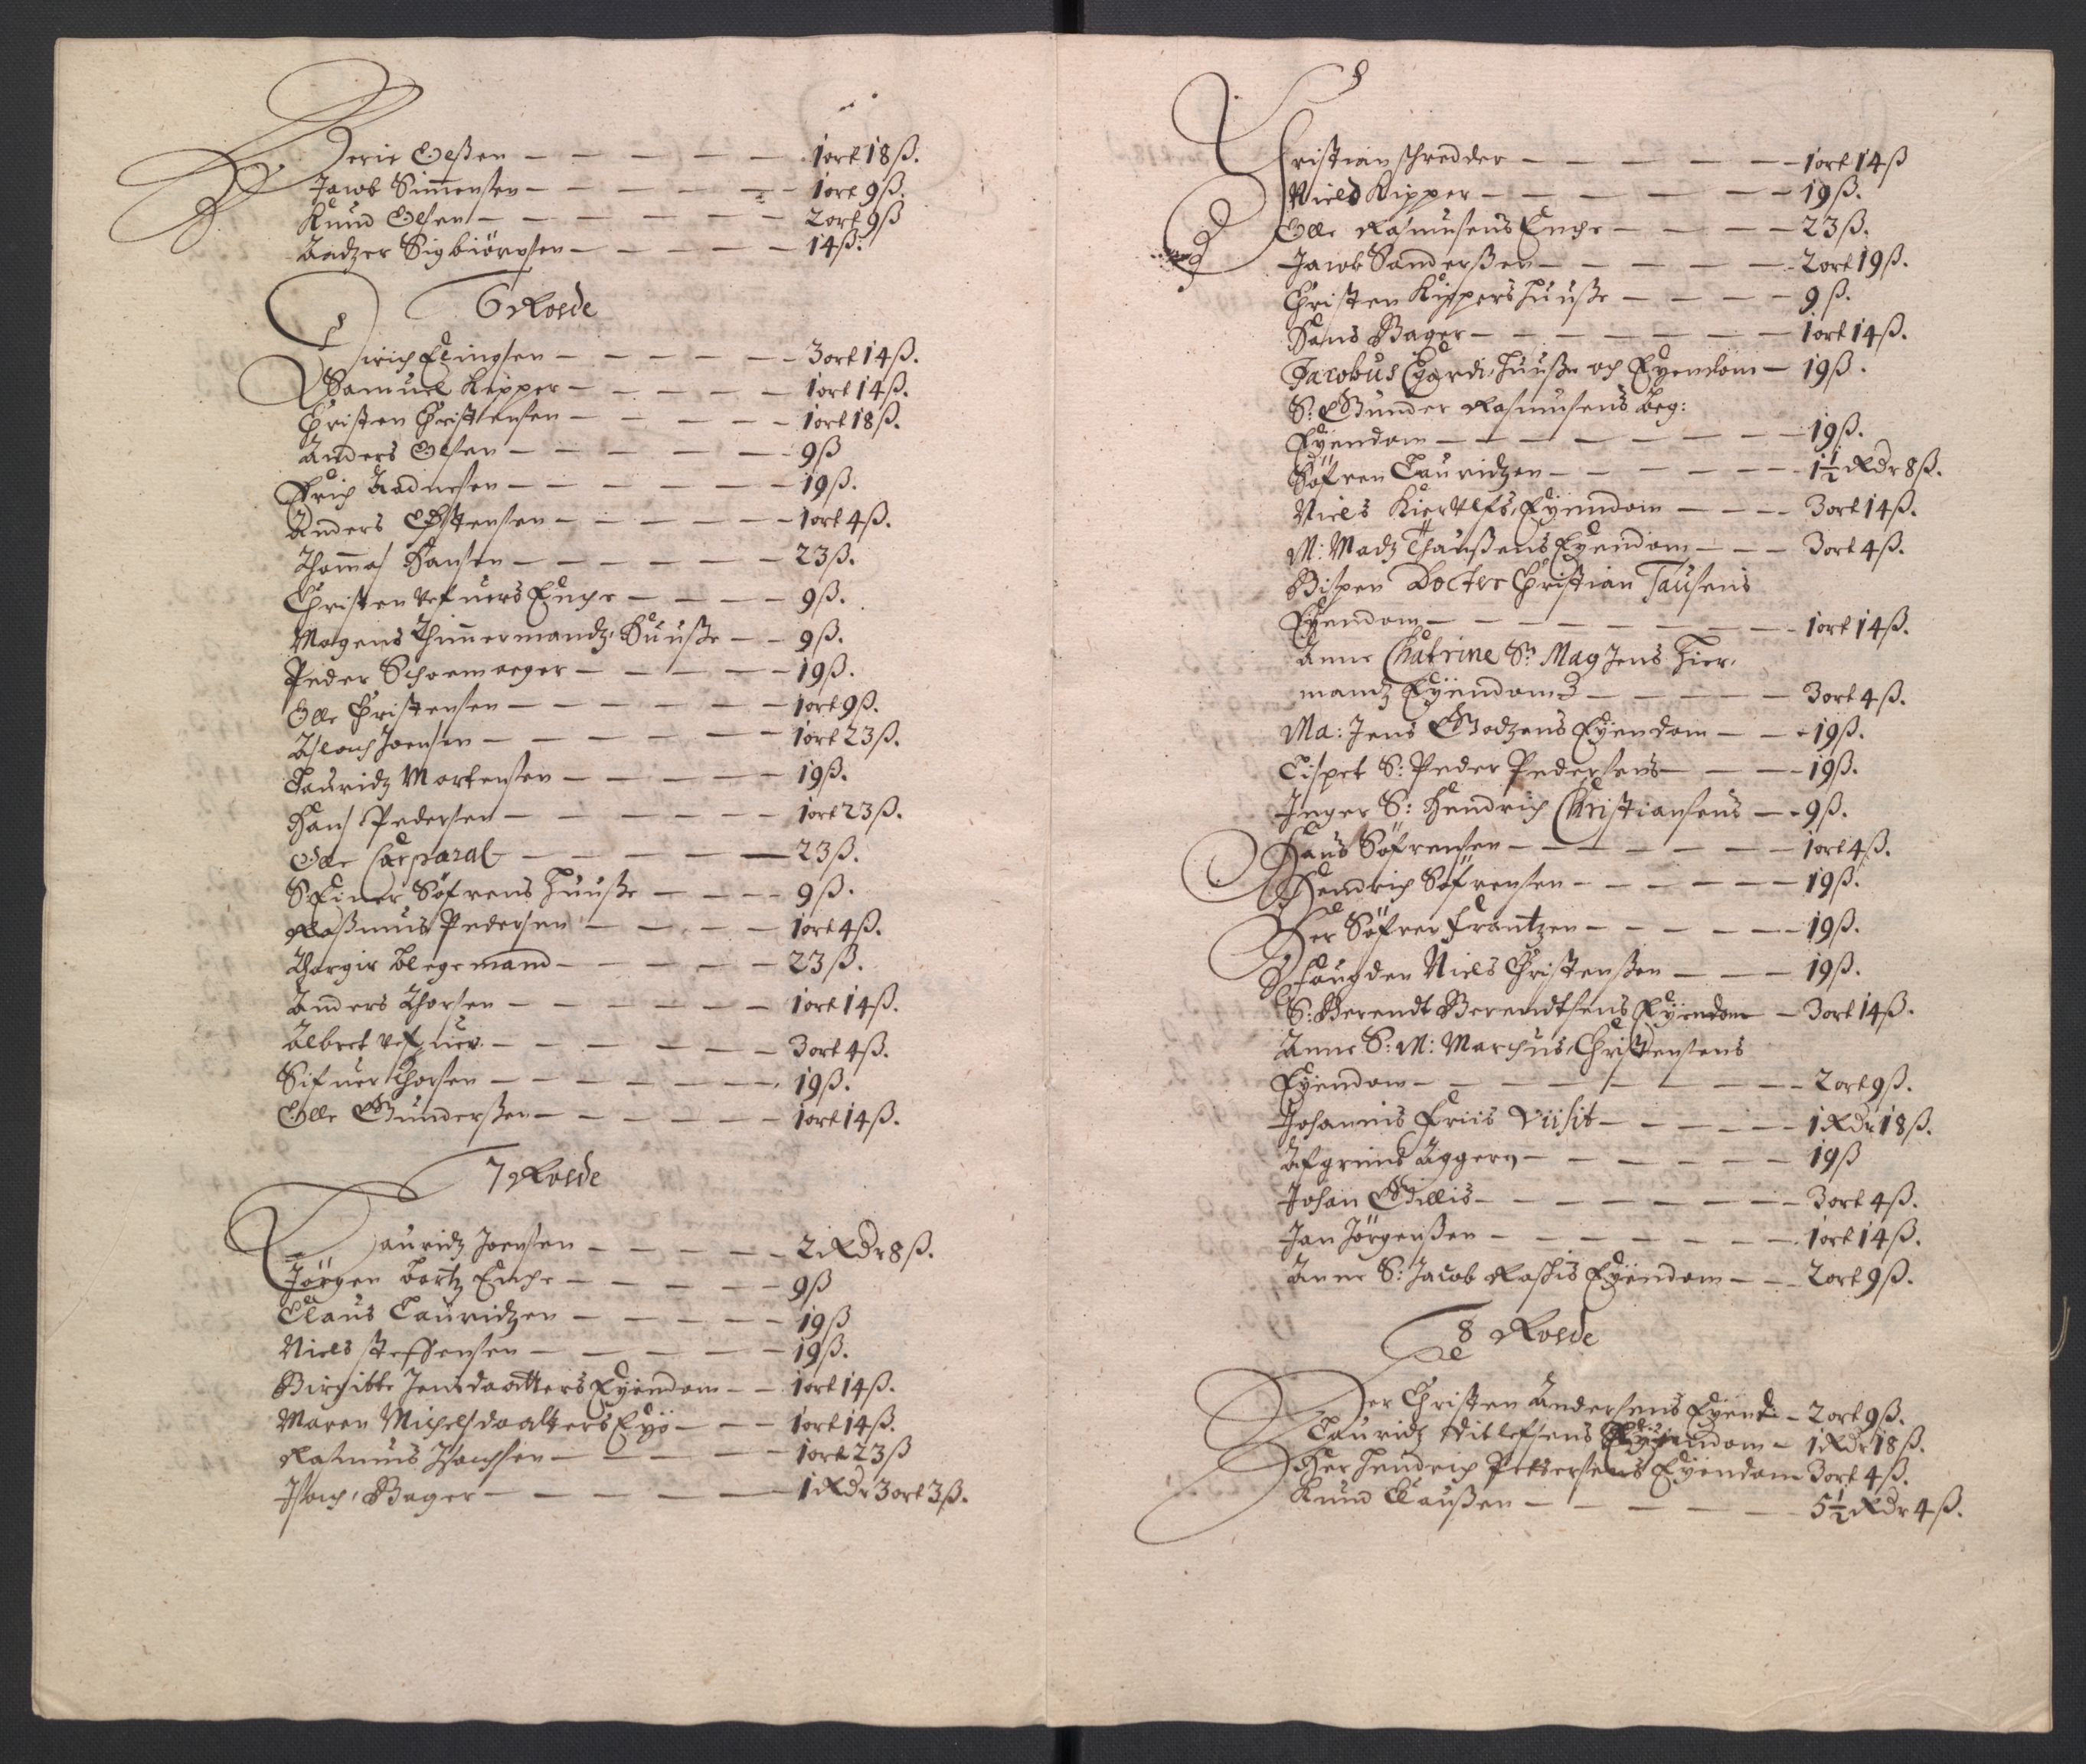 Berie Olßen — — — — — 1ort 18 ß.
Jacob Simensen — — — — — 1ort 9 ß.
Knud Olsen — — — — — — 2ort 9 ß
Aadzer Sigbiörnsen — — — — — 14 ß.
6 Roede
Dirich Elingsen — — — — — — 3ort 14 ß.
Samuel Kipper — — — — — 1ort 14 ß.
Christen Christensen — — — — — 1ort 18 ß.
Anders Olsen — — — — — — 9 ß
Erich Aadnesen — — — — — — 19 ß.
Anders Estensen — — — — — — 1ort 4 ß.
Thomas Hansen — — — — — — 23 ß.
Christen Vefuers Enche — — — — 9 ß.
Mogens Thimermandz Huuße — — 9 ß.
Peder Schoemager — — — — — 19 ß.
Olle Christensen — — — — — — 1ort 9 ß.
Aslach Joensen — — — — — — 1ort 23 ß.
Lauridz Mortensen — — — — — 19 ß.
Hans Pedersen — — — — — — 1ort 23 ß.
Olle Corparal — — — — — 23 ß.
S. Einer Söfrens Huuße — — — — 9 ß.
Raßmus Pedersen — — — — — 1ort 4 ß.
Thorgir blegemand — — — — — 23 ß.
Anders Thorsen — — — — — — 1ort 14 ß.
Albret Vefuer — — — — — — 3ort 4 ß.
Sifuer Thorsen — — — — — — 19 ß.
Olle Gunderßen — — — — — — 1ort 14 ß.
7 Roede
Lauridz Joensen — — — — — 2 Rdr 8 ß.
Jörgen bortz Enche — — — — — 9 ß
Claus Lauridzen — — — — — 19 ß
Niels Steffensen — — — — — — 19 ß.
Birgitte Jensdaatters Eyendom — — 1ort 14 ß.
Maren Michelsdaatters Eyö — — — 1ort 14 ß.
Rasmus Isachsen — — — — — 1ort 23 ß
Isach Bager — — — — — — 1 Rdr 3ort 3 ß.
Christian Schredder — — — — — — 1ort 14 ß
Niels Kipper — — — — — — 19 ß.
Olle Rasmusens Enche — — — — 23 ß.
Jacob Sanderßen — — — — — — 2ort 19 ß.
Christen Kippers Huuße — — — — 9 ß.
Hans Bager — — — — — — — 1ort 14 ß.
Jacobus Egardi Huuße och Eyendom — 19 ß.
S: Gunder Rasmusens beg:
Eyendom — — — — — — — — 19 ß.
Söfren Lauridzen — — — — — — 1½ Rdr 8 ß.
Niels Eyendom — — — — 3ort 14 ß.
M: Madz Thaußens Eyendom — — — 3ort 4 ß.
Bispen Docter Christian Tausens
Eyendom — — — — — — — — 1ort 14 ß.
Anne Chatrine Sl Mag Jens Hier-
mandz Eyendom — — — — — 3ort 4 ß.
Ma: Jens Godzens Eyendom — — — 19 ß.
Lispet S: Peder Pedersens — — — 19 ß.
Inger S: Hendrich Christiansens — — 9 ß.
Hans Söfrensen — — — — — — — 1ort 4 ß.
Hendrich Söfrensen — — — — — — 19 ß.
Her Söfren Frantzen — — — — — — 19 ß.
Fougden Niels Christenßen — — — 19 ß.
S: Berendt Berendtsens Eyendom — 3ort 14 ß.
Anne S: M: Marchus Christensens
Eyendom — — — — — — — — 2ort 9 ß.
Johannis Friis — — — — — 1 Rdr 18 ß.
Asgrims — — — — — — 19 ß
Johan Gillis — — — — — — — — 3ort 4 ß.
Jan Jörgenßen — — — — — — — 1ort 14 ß.
Anne S: Jacob Eyendom — — 2ort 9 ß.
8 Roede
Her Christen Andersens Eyend: — 2ort 9 ß.
Lauridz Ditlefsens Eyendom — 1 Rdr 18 ß.
Her Hendrich Pettersens Eyendom 3ort 4 ß.
Knud Claußen — — — — — — 5½ Rdr 4 ß.